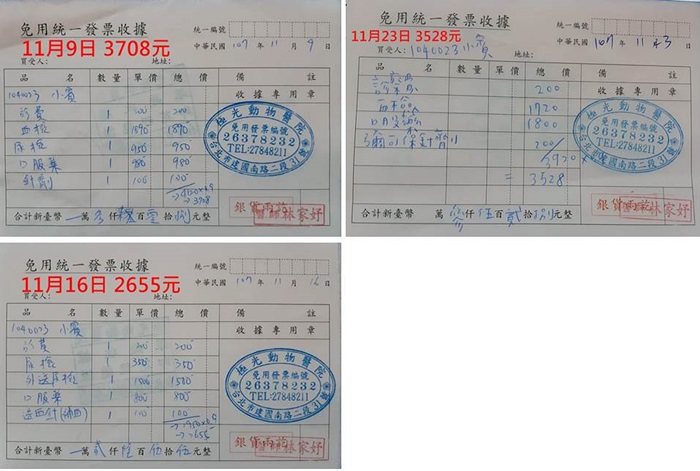 免用統一發票收據
11月9日 3708元
統一編號
中華民國 107年 11月 9日
買受人: 地址:
品名 數量 單價 總價 備註
1040023 小賓 收據專用章
診費 1 200 200
血檢 1 1890 1890
尿檢 1 950 950
口服藥 1 980 980
針劑 1 100 100
極光動物醫院
免用發票編號
26378232
TEL:27848211
台北市建國南路二段31號
→3708
銀貨兩訖
醫師林家妤
合計新臺幣 萬 仟 百 拾 元整
免用統一發票收據
11月23日 3528元
統一編號
中華民國 107年 11月 23日
買受人: 1040023小賓 地址:
品名 數量 單價 總價 備註
200 收據專用章
1720
1800
200
3920
= 3528
極光動物醫院
免用發票編號
26378232
TEL:27848211
台北市建國南路二段31號
銀貨兩訖
醫師林家妤
合計新臺幣 萬 仟伍百貳拾 元整
免用統一發票收據
11月16日 2655元
統一編號
中華民國 107年 11月 16日
買受人: 地址:
品名 數量 單價 總價 備註
1040023 小賓 收據專用章
診費 1 200 200
尿檢 1 350 350
外送尿檢 1 1500 1500
口服藥 1 800 800
1 100 100
→2655
極光動物醫院
免用發票編號
26378232
TEL:27848211
台北市建國南路二段31號
銀貨兩訖
醫師林家妤
合計新臺幣 萬貳仟陸百伍拾伍元整